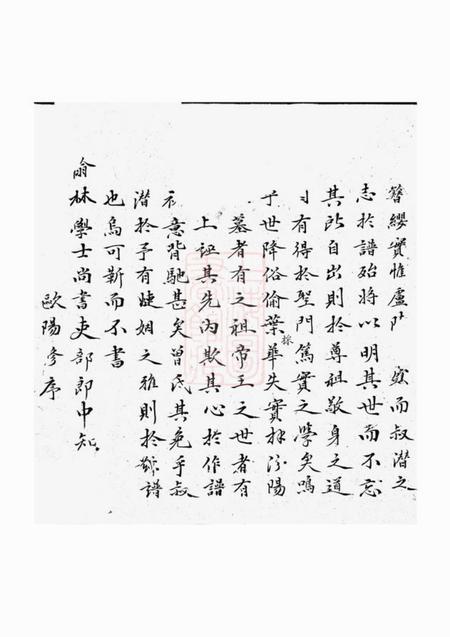 簪纓實惟盧阝 寂而叔潛之
志於譜殆將以明其世而不忘
其所自出則於尊祖敬身之道
有得於聖門篤實之學矣嗚
乎世降俗偷葉華失實採汾陽
墓者有之祖帝王之世者有
上誣其先內欺其心於作譜
意背馳甚矣曾氏其免乎叔
潛於予有婕姻之雅則於斯譜
也烏可靳而不書
翰林學士尚書吏部郎中知
歐陽修序